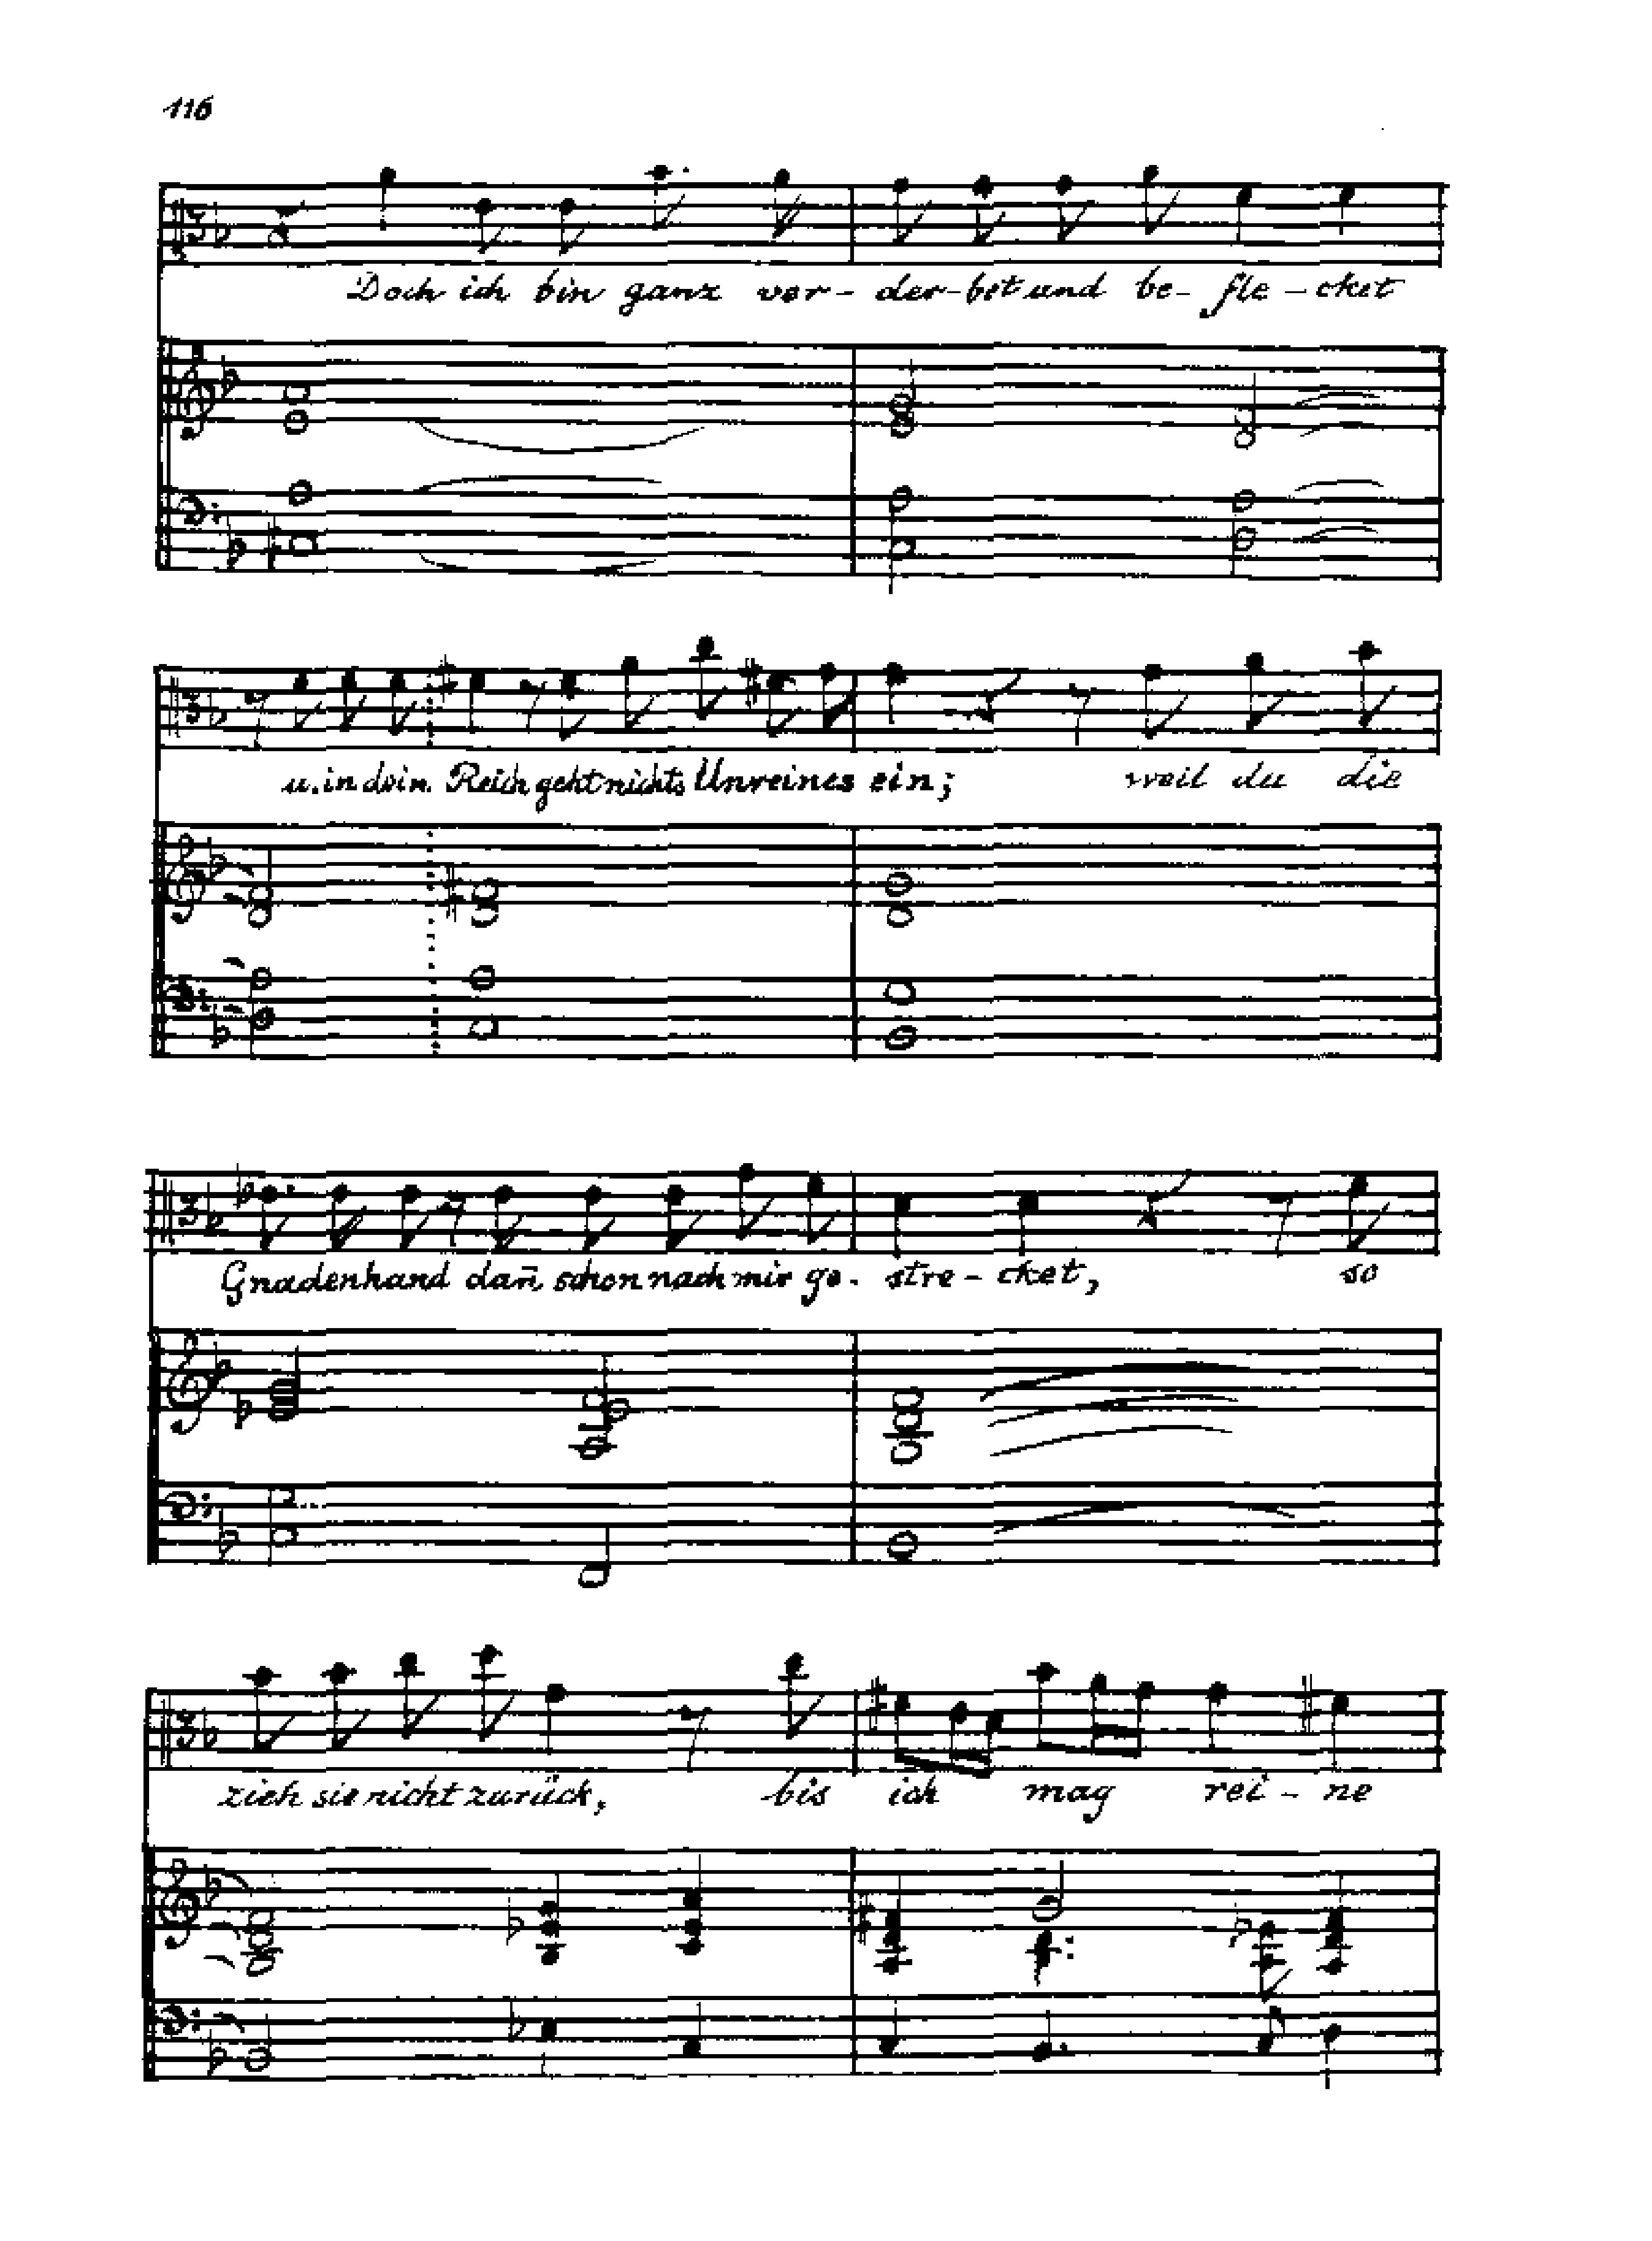 116
Doch ich bin ganz ver-der-bet und be-fle-cket
u. in dein. Reich geht nichts Unreines ein; weil du die
Gnadenhand dañ schon nach mir ge-stre-cket, so
zieh sie nicht zurück, bis ich mag rei-ne